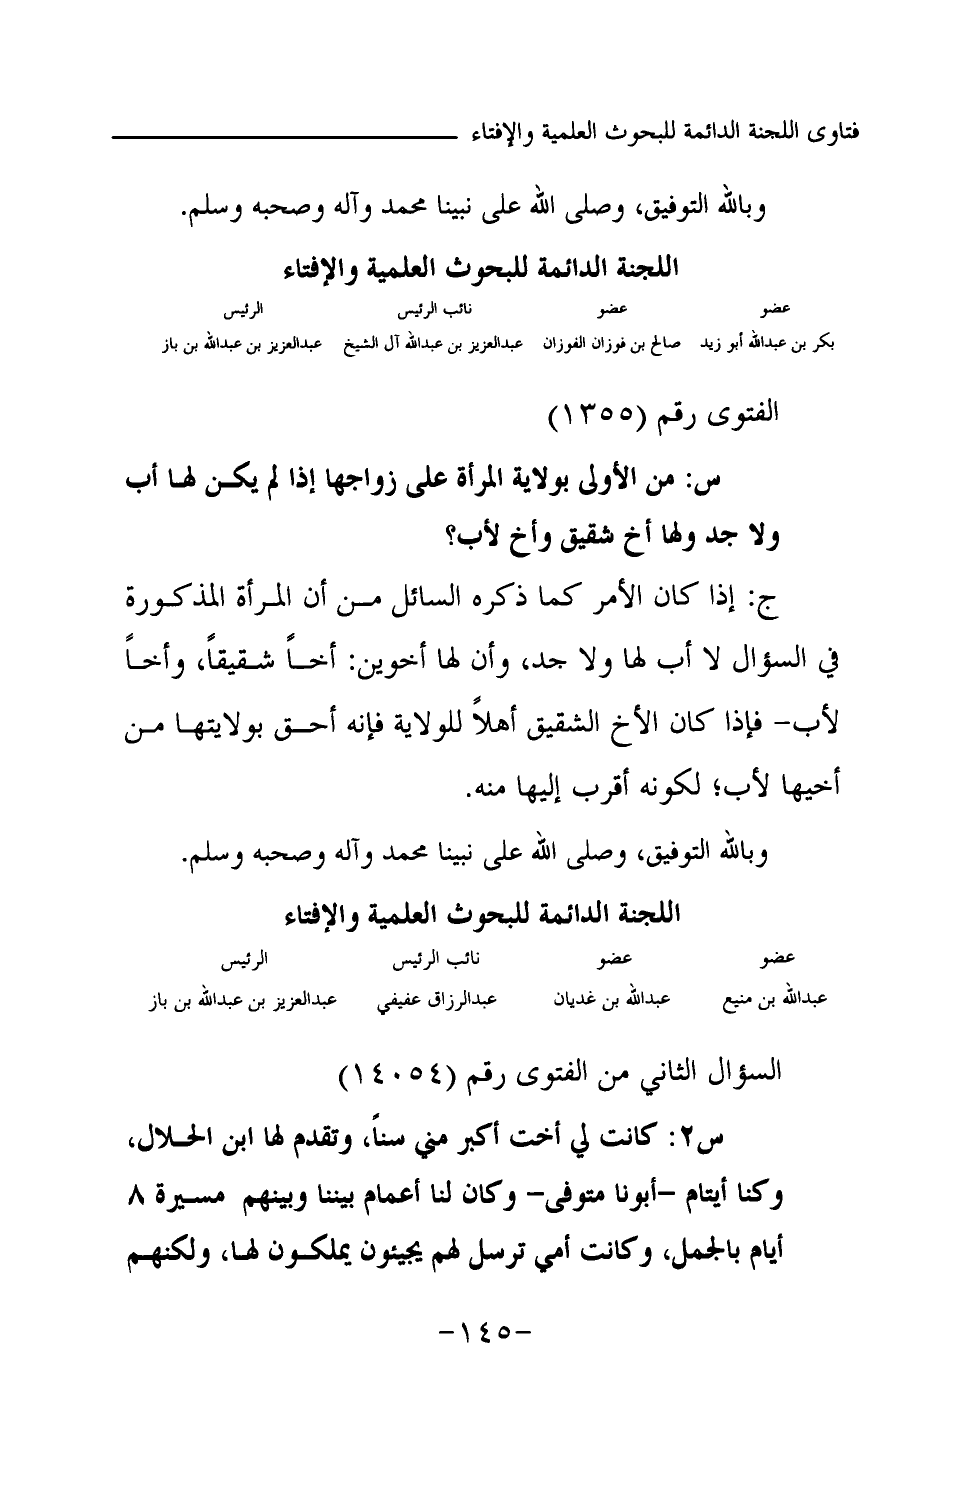 فتاوى اللجنة الدائمة للبحوث العلمية والإفتاء
وبالله التوفيق، وصلى الله على نبينا محمد وآله وصحبه وسلم.
اللجنة الدائمة للبحوث العلمية والإفتاء
عضو عضو نائب الرئيس الرئيس
بكر بن عبدالله أبو زيد صالح بن فوزان الفوزان عبدالعزيز بن عبدالله آل الشيخ عبدالعزيز بن عبدالله بن باز
الفتوى رقم (١٣٥٥)
س: من الأولى بولاية المرأة على زواجها إذا لم يكن لها أب
ولا جد ولها أخ شقيق وأخ لأب؟
ج: إذا كان الأمر كما ذكره السائل من أن المرأة المذكورة
في السؤال لا أب لها ولا جد، وأن لها أخوين: أخاً شقيقاً، وأخاً
لأب- فإذا كان الأخ الشقيق أهلاً للولاية فإنه أحق بولايتها من
أخيها لأب؛ لكونه أقرب إليها منه.
وبالله التوفيق، وصلى الله على نبينا محمد وآله وصحبه وسلم.
اللجنة الدائمة للبحوث العلمية والإفتاء
عضو عضو نائب الرئيس الرئيس
عبدالله بن منيع عبدالله بن غديان عبدالرزاق عفيفي عبدالعزيز بن عبدالله بن باز
السؤال الثاني من الفتوى رقم (١٤٠٥٤)
س٢: كانت لي أخت أكبر مني سناً، وتقدم لها ابن الحلال،
وكنا أيتام -أبونا متوفى- وكان لنا أعمام بيننا وبينهم مسيرة ٨
أيام بالجمل، وكانت أمي ترسل لهم يجيئون يملكون لها، ولكنهم
-١٤٥-